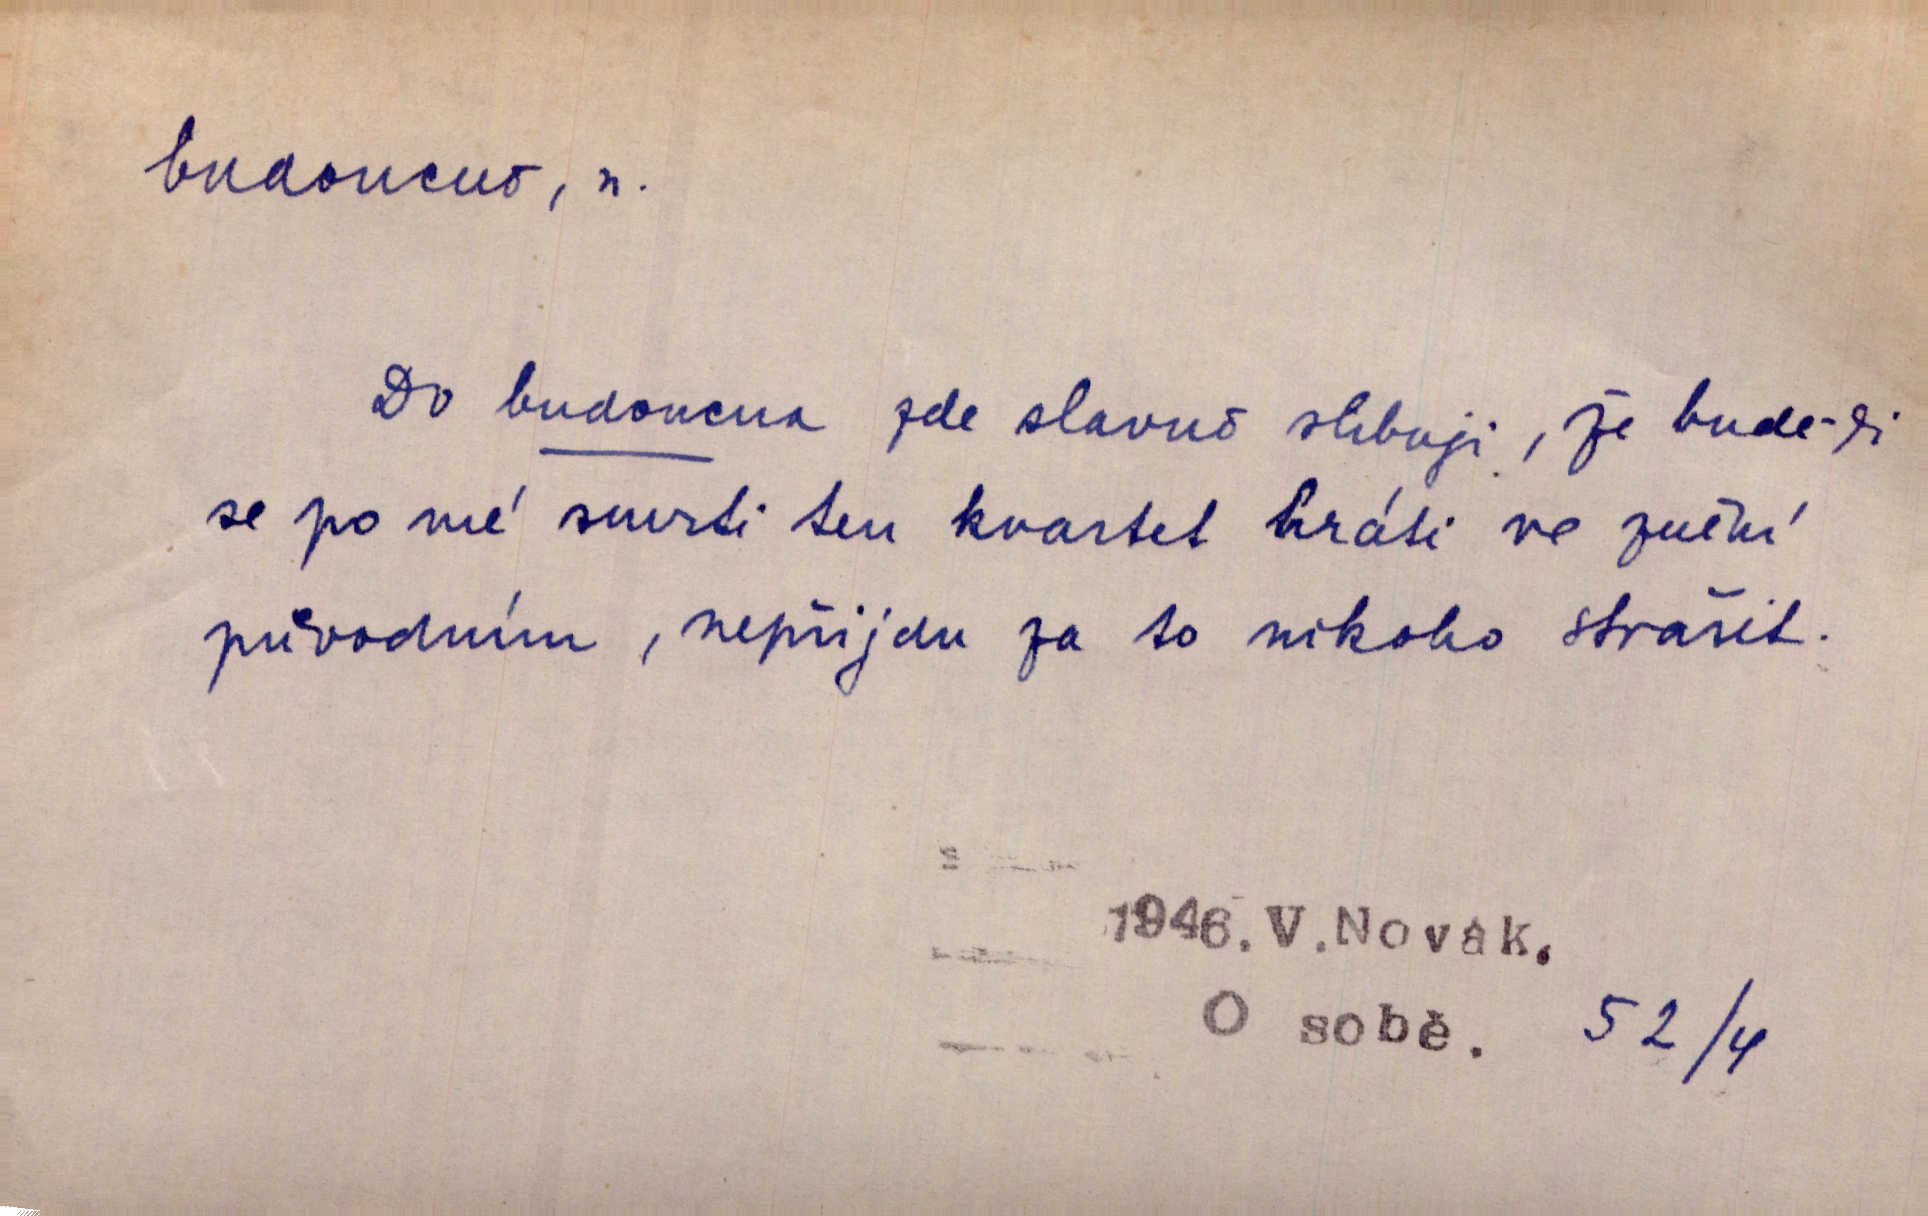 budoucno, n.
Do budoucna zde slavně slibuji, že bude-li
se po mé smrti ten kvartet hráti ve znění
původním, nepřijdu za to nikoho strašit.
1946. V. Novák.
O sobě. 52/4